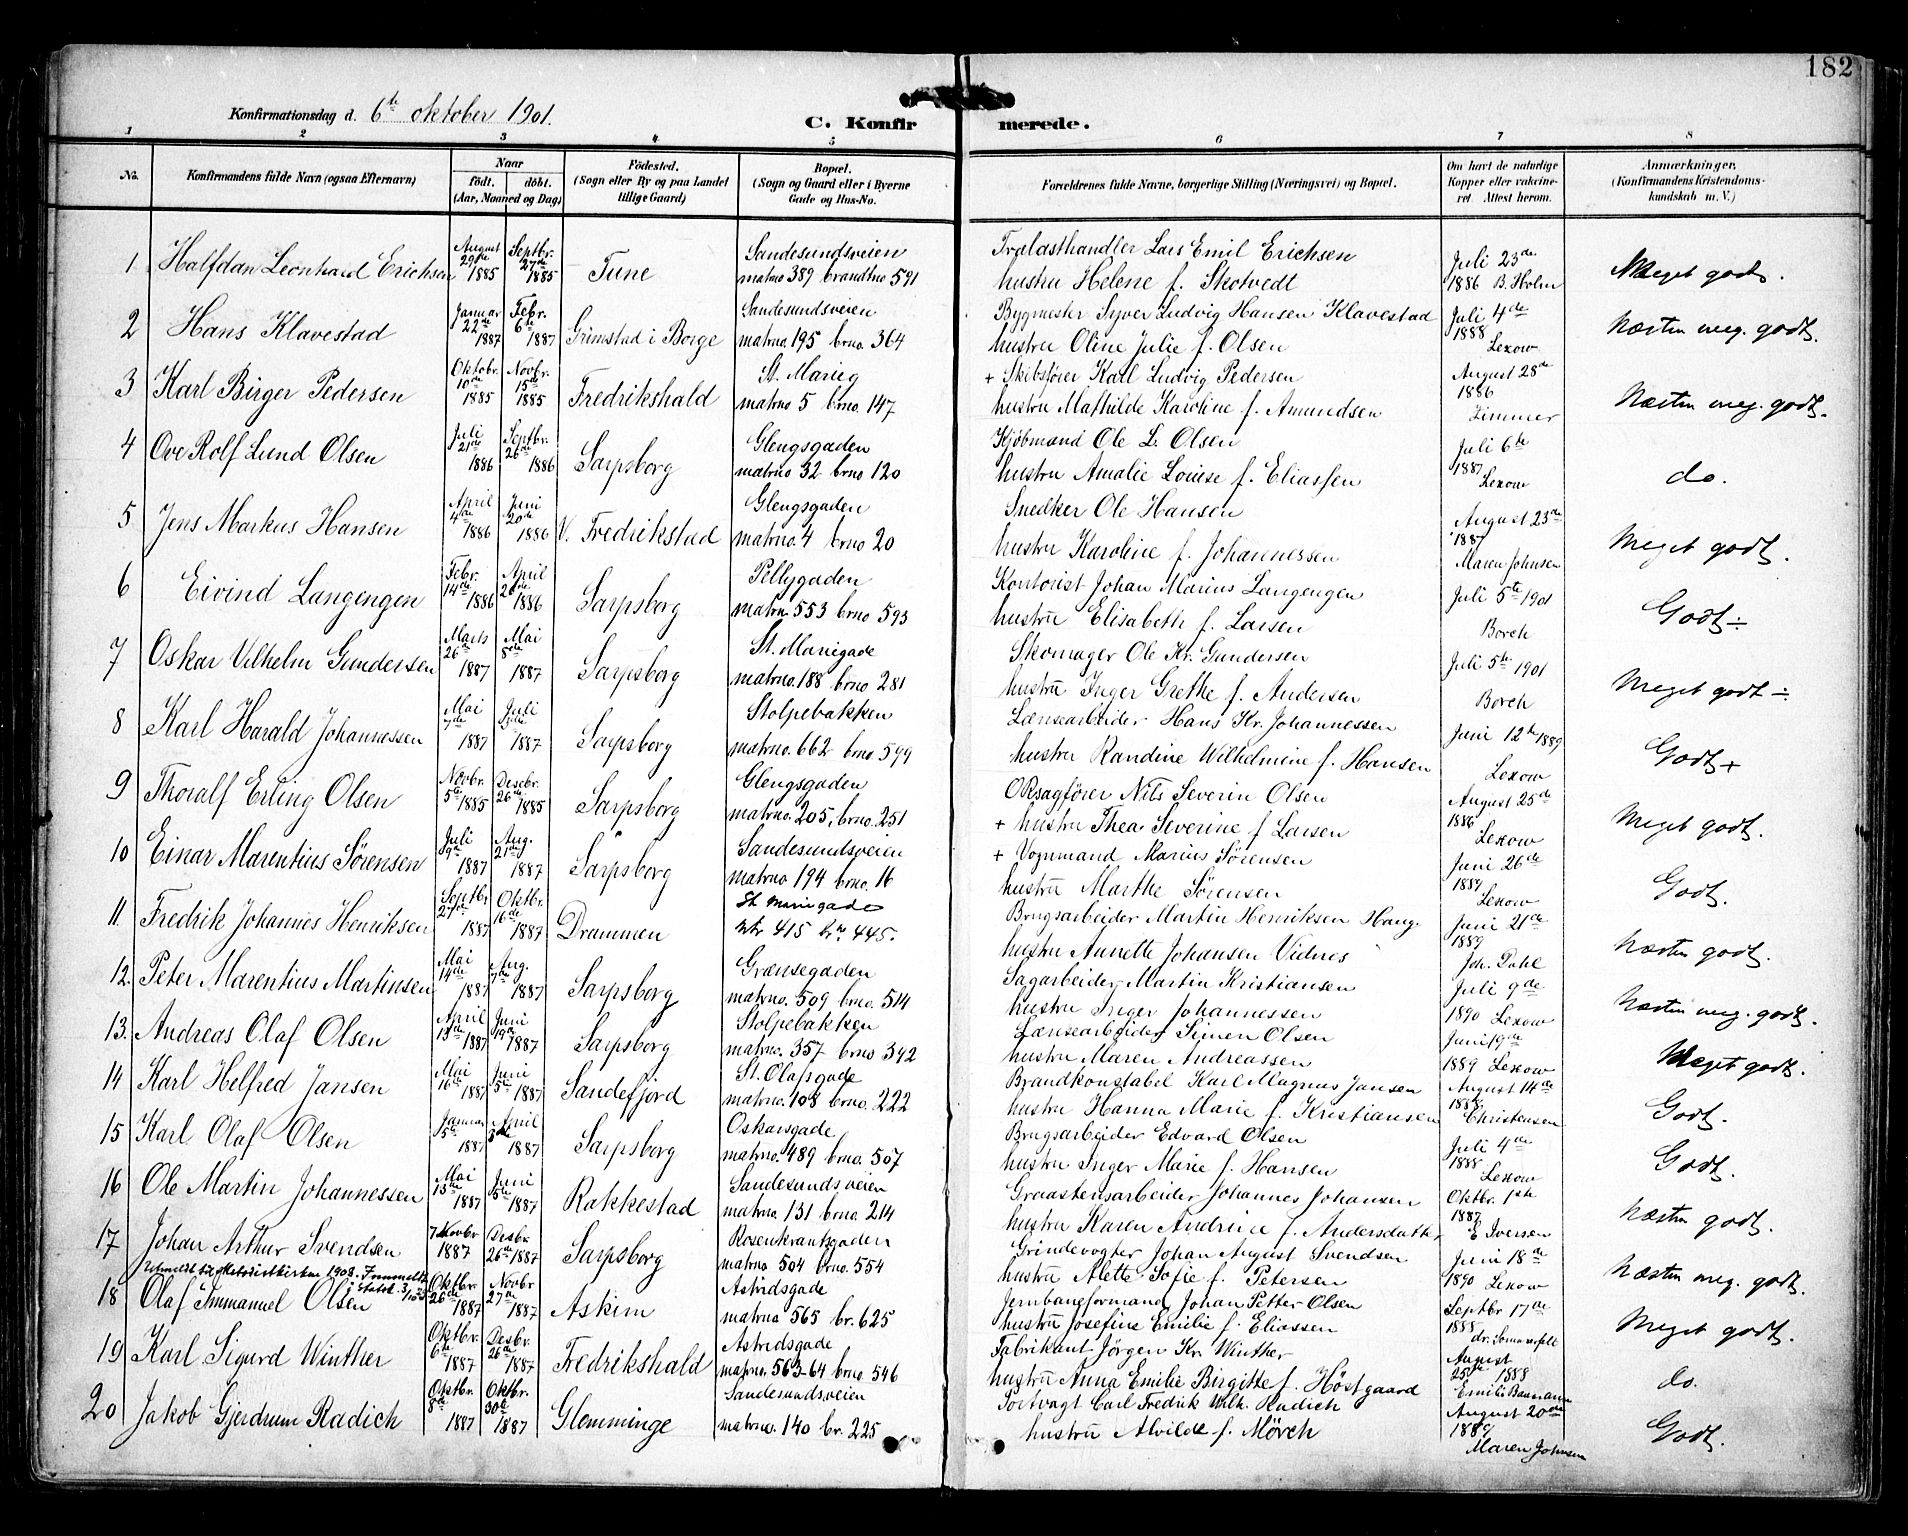 182
Konfirmationsdag d. 6te oktober 1901.
C. Konfirmerede.
1 2 3 4 5 6 7 8
No. Konfirmandens fulde Navn (ogsaa Efternavn) Naar födt. döbt. (Aar, Maaned og Dag) Födested. (Sogn eller By og paa Landet tillige Gaard) Bopæl. (Sogn og Gaard eller i Byerne Gade og Hus-No. Forældrenes fulde Navne, borgerlige Stilling (Næringsvei) og Bopæl. Om havt de naturlige Kopper eller vakcineret Attest herom. Anmærkninger. (Konfirmandens Kristendomskundskab m. V.)
1 Halfdan Leonhard Erichsen August 29de 1885 Septbr. 27de 1885 Tune Sandesundsveien matrno 389 brandtno 591 Trælasthandler Lars Emil Erichsen hustru Helene f. Skotvedt Juli 23de 1886 B. Holm Meget godt.
2 Hans Klavestad Januar 22de 1887 Febr. 6te 1887 Grimstad i Borge Sandesundsveien matrno. 195 brno. 364 Bygmester Syver Ludvig Hansen Klavestad hustru Oline Julie f. Olsen Juli 4de 1888 Lexow Næsten meg. godt.
3 Karl Birger Pedersen Oktobr. 10de 1885 Novbr. 15de 1885 Fredrikshald St. Marieg matrno 5 brno. 147 + Skibsfører Karl Ludvig Pedersen hustru Mathilde Karoline f. Amundsen August 28de 1886 Zimmer Næsten meg. godt.
4 Ove Rolf Lund Olsen Juli 21de 1886 Septbr. 26de 1886 Sarpsborg Glengsgaden matrno 32 brno 120 Kjöbmand Ole L. Olsen hustru Amalie Louise f. Eliassen Juli 6te 1887 Lexow do.
5 Jens Markus Hansen April 4de 1886 Juni 20de 1886 V. Fredrikstad Glengsgaden matrno. 4 brno 20 Snedker Ole Hansen hustru Karoline f. Johannessen August 23de 1887 Maren Johnsen Meget godt.
6 Eivind Langengen Febr. 14de 1886 April 26de 1886 Sarpsborg Pellygaden matrn. 553 brno 593 Kontorist Johan Marius Langengen hustru Elisabeth f. Larsen Juli 5te 1901 Borch Godt÷
7 Oskar Vilhelm Gundersen Marts 26de 1887 Mai 8de 1887 Sarpsborg St. Mariegade matrno. 188 brno 281 Skomager Ole Kr. Gundersen hustru Inger Grethe f. Andersen Juli 5te 1901 Borch Meget godt÷
8 Karl Harald Johannessen Mai 7de 1887 Juli 1887 Sarpsborg Stolpebakken matrno. 662 brno 599 Lænsearbeider Hans Kr. Johannessen hustru Randine Wilhelmine f. Hansen Juni 12te 1889 Lexow Godt+
9 Thoralf Erling Olsen Novbr. 5te 1885 Desebr. 26de 1885 Sarpsborg Glengsgaden matrno. 205, brno. 251 ORsagfører Nils Severin Olsen + hustru Thea Severine f Larsen August 25de 1886 Lexow Meget godt.
10 Einar Marentius Sørensen Juli 9de 1887 Aug. 21de 1887 Sarpsborg Sandesundsveien matrno 194 brno. 16 + Vognmand Marius Sørensen hustru Marthe Sørensen Juni 26de 1889 Lexow Godt.
11 Fredrik Johannes Henriksen Septbr 27de 1887 Oktbr. 16de 1887 Drammen St Mariegade 415 445. Brugsarbeider Martin Henriksen Haug. hustru Annette Johansen Vidnes Juni 21de 1889 Joh. Dahl Næsten godt.
12. Peter Marentius Martinsen Mai 14de 1887 Aug. 7de 1887 Sarpsborg Grænsegaden matrno. 509 brno. 514 Sagarbeider Martin Kristiansen hustru Inger Johannessen Juli 9de 1890 Lexow Næsten meg. godt.
13. Andreas Olaf Olsen April 13de 1887 Juni 19de 1887 Sarpsborg Stolpebakken matrno. 357 brno 392 Lænsearbeider Simen Olsen hustru Maren Andreassen Juni 19de 1889 Lexow Meget godt.
14 Karl Helfred Jansen Mai 16de 1887 Juni 5te 1887 Sandefjord St. Olafsgade matrno. 108 brno. 222 Brandkonstabel Karl Magnus Jansen hustru Hanna Marie f. Kristiansen August 14de 1888 Christensen Godt.
15 Karl Olaf Olsen Januar 5te 1887 April 1887 Sarpsborg Oskarsgade matrno. 489 brno. 507 Brugsarbeider Edvard Olsen hustru Inger Marie f. Hansen Juli 4de 1888 Lexow Godt.
16 Ole Martin Johannessen Mai 13de 1887 Juni 5te 1887 Rakkestad Sandesundsveien matrno. 131 brno. 214 Graastensarbeider Johannes Johansen hustru Karen Andrine f. Andersdatter Oktbr. 1ste 1887 E Iversen Næsten godt.
17 Johan Arthur Svendsen 7 Novbr 1887 Desbr. 26de 1887 Sarpsborg Rosenkrantsgaden matrno 504 brno. 554 Grindevogter Johan August Svendsen hustru Alette Sofie f. Petersen Juni 18de 1890 Lexow Næsten meg. godt.
Udmeldt til Metodistkirken 1908. Innmeldt i Statsk.
18 Olaf Immanuel Olsen Oktbr. 26de 1887 Novbr 27de 1887 Askim Astridsgade matrno 565 br. 625 Jernbaneformand Johan Petter Olsen hustru Josefine Emilie f. Eliassen Septbr 17de 1888 dr. Sommerfelt Meget godt.
19 Karl Sigurd Winther Oktbr. 6te 1887 Desbr. 26de 1887 Fredrikshald Astridsgade matrno. 563-64 brno. 546 Fabrikant Jörgen Kr. Winther hustru Anna Emilie Birgitte f. Höstgaard August 25de 1888 Emilie Baumann do.
20 Jakob Gjerdrum Radich Oktbr. 8de 1887 Oktbr. 30te 1887 Glemminge Sandesundsveien matrno. 140 br. 225 Toltvagt Carl Fredrik Wilh. Radich hustru Alvilde f. Mörch August 20de 1889 Maren Johnsen Godt.